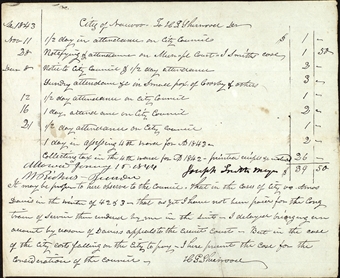 1843 City of Nauvoo To H G Sherwood Dr
Nov 11 1/2 day in attendance on City Council $ 1 -
Notifying & attendance on Municipl Court - J Smiths case 1 50
Notice to City Council & 1/2 day attendance 3 -
Sunday attendance 3 -
12 1/2 day attendance on City Council 1 -
16 1 day, attendance on City Council 2 -
21 1/2 day attendance on City Council 1 -
1 day in 4th ward for AD 1843 - 1
Collecting tax in the 4th ward for AD 1842 - 26 -
Allowed Jany 15 1844 Joseph Smith Mayor $ 39 50
W Richards - Recorder
It may be proper to here observe to the Council - that in the case of City vs Amos
Davis in the winter of 42 & 3 - that as yet I have not been paid for the long
train of service thus endured by me in the suit - I delayed bringing my
account by reason of Davis appeal to the circuit Court - But in the case
of the City costs falling on the City to pay - I here present the case for the
consideration of the council - H G Sherwood